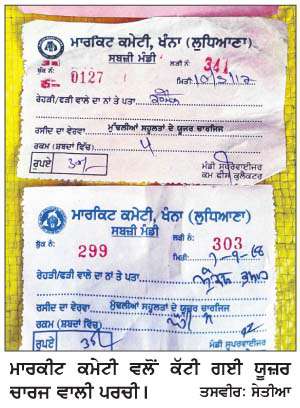 ਮਾਰਕਿਟ ਕਮੇਟੀ, ਖੰਨਾ (ਲੁਧਿਆਣਾ)
ਸਬਜ਼ੀ ਮੰਡੀ
ਬੁੱਕ ਨੰ: 0127 ਲੜੀ ਨੰ: 341
ਮਿਤੀ
ਰੇਹੜੀ/ਫੜੀ ਵਾਲੇ ਦਾ ਨਾਂ ਤੇ ਪਤਾ
ਰਸੀਦ ਦਾ ਵੇਰਵਾ ਮੁੱਢਲੀਆਂ ਸਹੂਲਤਾਂ ਦੇ ਯੂਜ਼ਰ ਚਾਰਜਿਜ਼
ਰਕਮ (ਸ਼ਬਦਾਂ ਵਿੱਚ)
ਰੁਪਏ
ਮੰਡੀ ਸੁਪਰਵਾਈਜ਼ਰ
ਕਮ ਫੀਸ ਕੁਲੈਕਟਰ
ਮਾਰਕਿਟ ਕਮੇਟੀ, ਖੰਨਾ (ਲੁਧਿਆਣਾ)
ਸਬਜ਼ੀ ਮੰਡੀ
ਬੁੱਕ ਨੰ: 299 ਲੜੀ ਨੰ: 303
ਮਿਤੀ
ਰੇਹੜੀ/ਫੜੀ ਵਾਲੇ ਦਾ ਨਾਂ ਤੇ ਪਤਾ
ਰਸੀਦ ਦਾ ਵੇਰਵਾ ਮੁੱਢਲੀਆਂ ਸਹੂਲਤਾਂ ਦੇ ਯੂਜ਼ਰ ਚਾਰਜਿਜ਼
ਰਕਮ (ਸ਼ਬਦਾਂ ਵਿੱਚ)
ਰੁਪਏ
ਮੰਡੀ ਸੁਪਰਵਾਈਜ਼ਰ
ਮਾਰਕੀਟ ਕਮੇਟੀ ਵਲੋਂ ਕੱਟੀ ਗਈ ਯੂਜ਼ਰ
ਚਾਰਜ ਵਾਲੀ ਪਰਚੀ। ਤਸਵੀਰ: ਸੇਤੀਆ